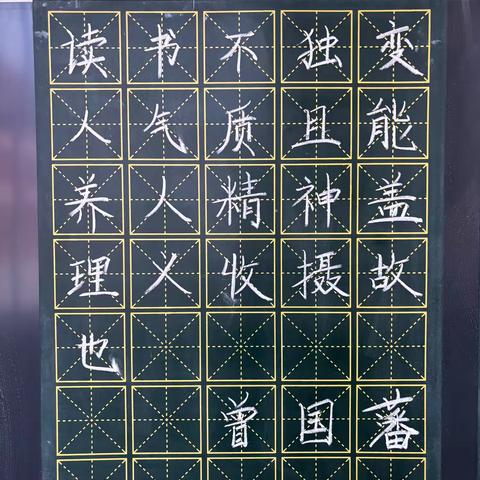 读书不独变
人气质且能
养人精神盖
理义收摄故
也
曾国蕃